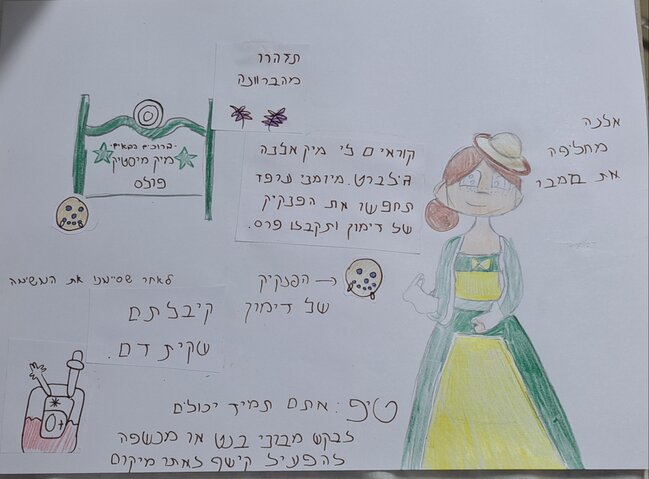 תזהרו
מהברוונה
ברוכים הבאים
מיק מיסטיק
פולס
קוראים לי מיק אלנה
גילברט. מיומני ערפד
תחפשו את הפנקיק
של דימון ותקבלו פרס.
אלנה
מחליפה
את במבר
הפנקיק →
של דימון
לאחר שסיימנו את המשימה
קיבלתם
שקית דם.
O+
טיפ: אתם תמיד יכולים
לבקש מבוני בנט או מכשפה
להפעיל קישף לאתר מיקום